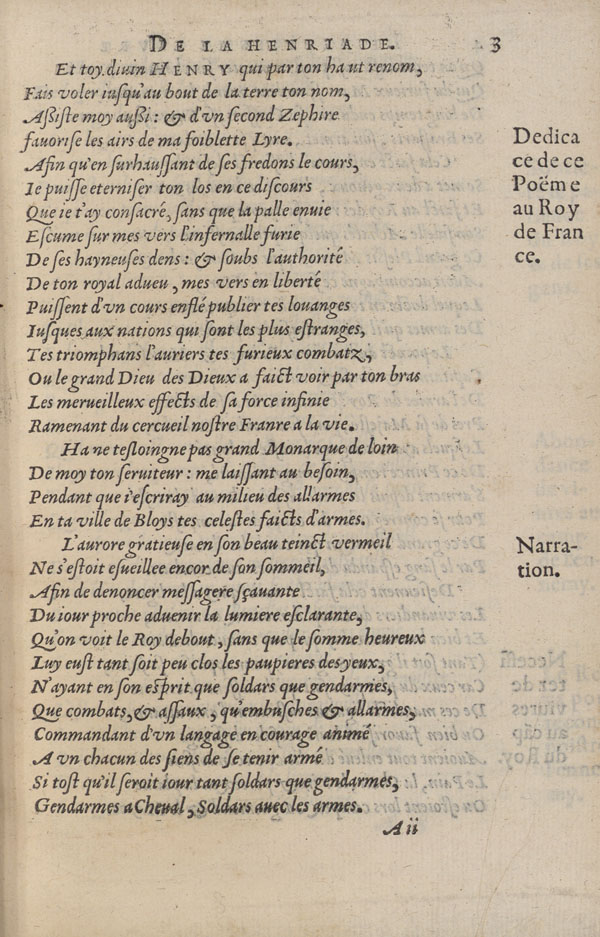 DE LA HENRIADE. 3
Et toy diuin HENRY qui par ton haut renom,
Fais voler iusqu'au bout de la terre ton nom,
Aßiſte moy außi: & d'vn second Zephire
fauoriſe les airs de ma foiblette Lyre.
Afin qu'en ſurhauſſant de ſes fredons le cours,
Ie puiſſe eterniſer ton los en ce diſcours
Que ie t'ay conſacré, ſans que la palle enuie
Eſcume ſur mes vers l'infernalle furie
De ſes hayneuſes dens: & ſoubs l'authorité
De ton royal adueu, mes vers en liberté
Puiſſent d'vn cours enflé publier tes louanges
Iuſques aux nations qui ſont les plus eſtranges,
Tes triomphans l'auriers tes furieux combatz,
Ou le grand Dieu des Dieux a faict voir par ton bras
Les merueilleux effects de ſa force infinie
Ramenant du cercueil noſtre Franre a la vie.
Ha ne teſloingne pas grand Monarque de loin
De moy ton ſeruiteur: me laiſſant au beſoin,
Pendant que i'eſcriray au milieu des allarmes
En ta ville de Bloys tes celeſtes faicts d'armes.
L'aurore gratieuſe en ſon beau teinct vermeil
Ne s'eſtoit eſueillee encor de ſon ſommeil,
Afin de denoncer meſſagere ſçauante
Du iour proche aduenir la lumiere eſclarante,
Qu'on voit le Roy debout, ſans que le ſomme heureux
Luy euſt tant ſoit peu clos les paupieres des yeux,
N'ayant en ſon eſprit que ſoldars que gendarmes,
Que combats, & aſſaux, qu'embuſches & allarmes,
Commandant d'vn langage en courage animé
A vn chacun des ſiens de ſe tenir armé
Si toſt qu'il ſeroit iour tant ſoldars que gendarmes,
Gendarmes a Cheual, Soldars auec les armes.
A ii
Dedica
ce de ce
Poëme
au Roy
de Fran
ce.
Narra-
tion.